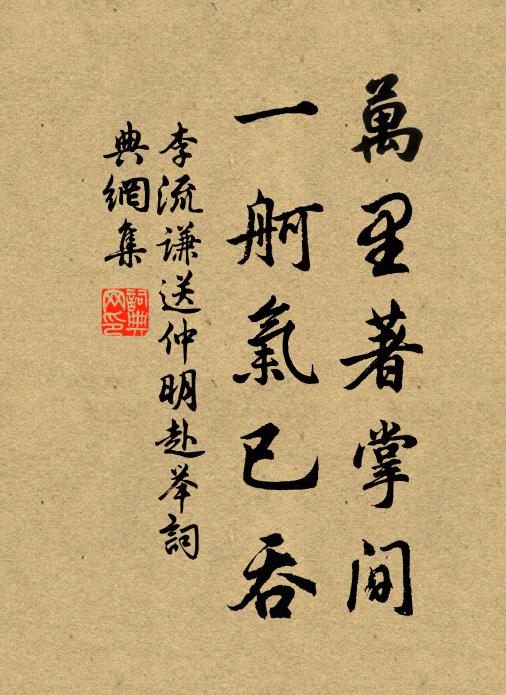 萬里著掌間
一舸氣已吞
李流谦送仲明赴举詞
典網集
詞典
网印